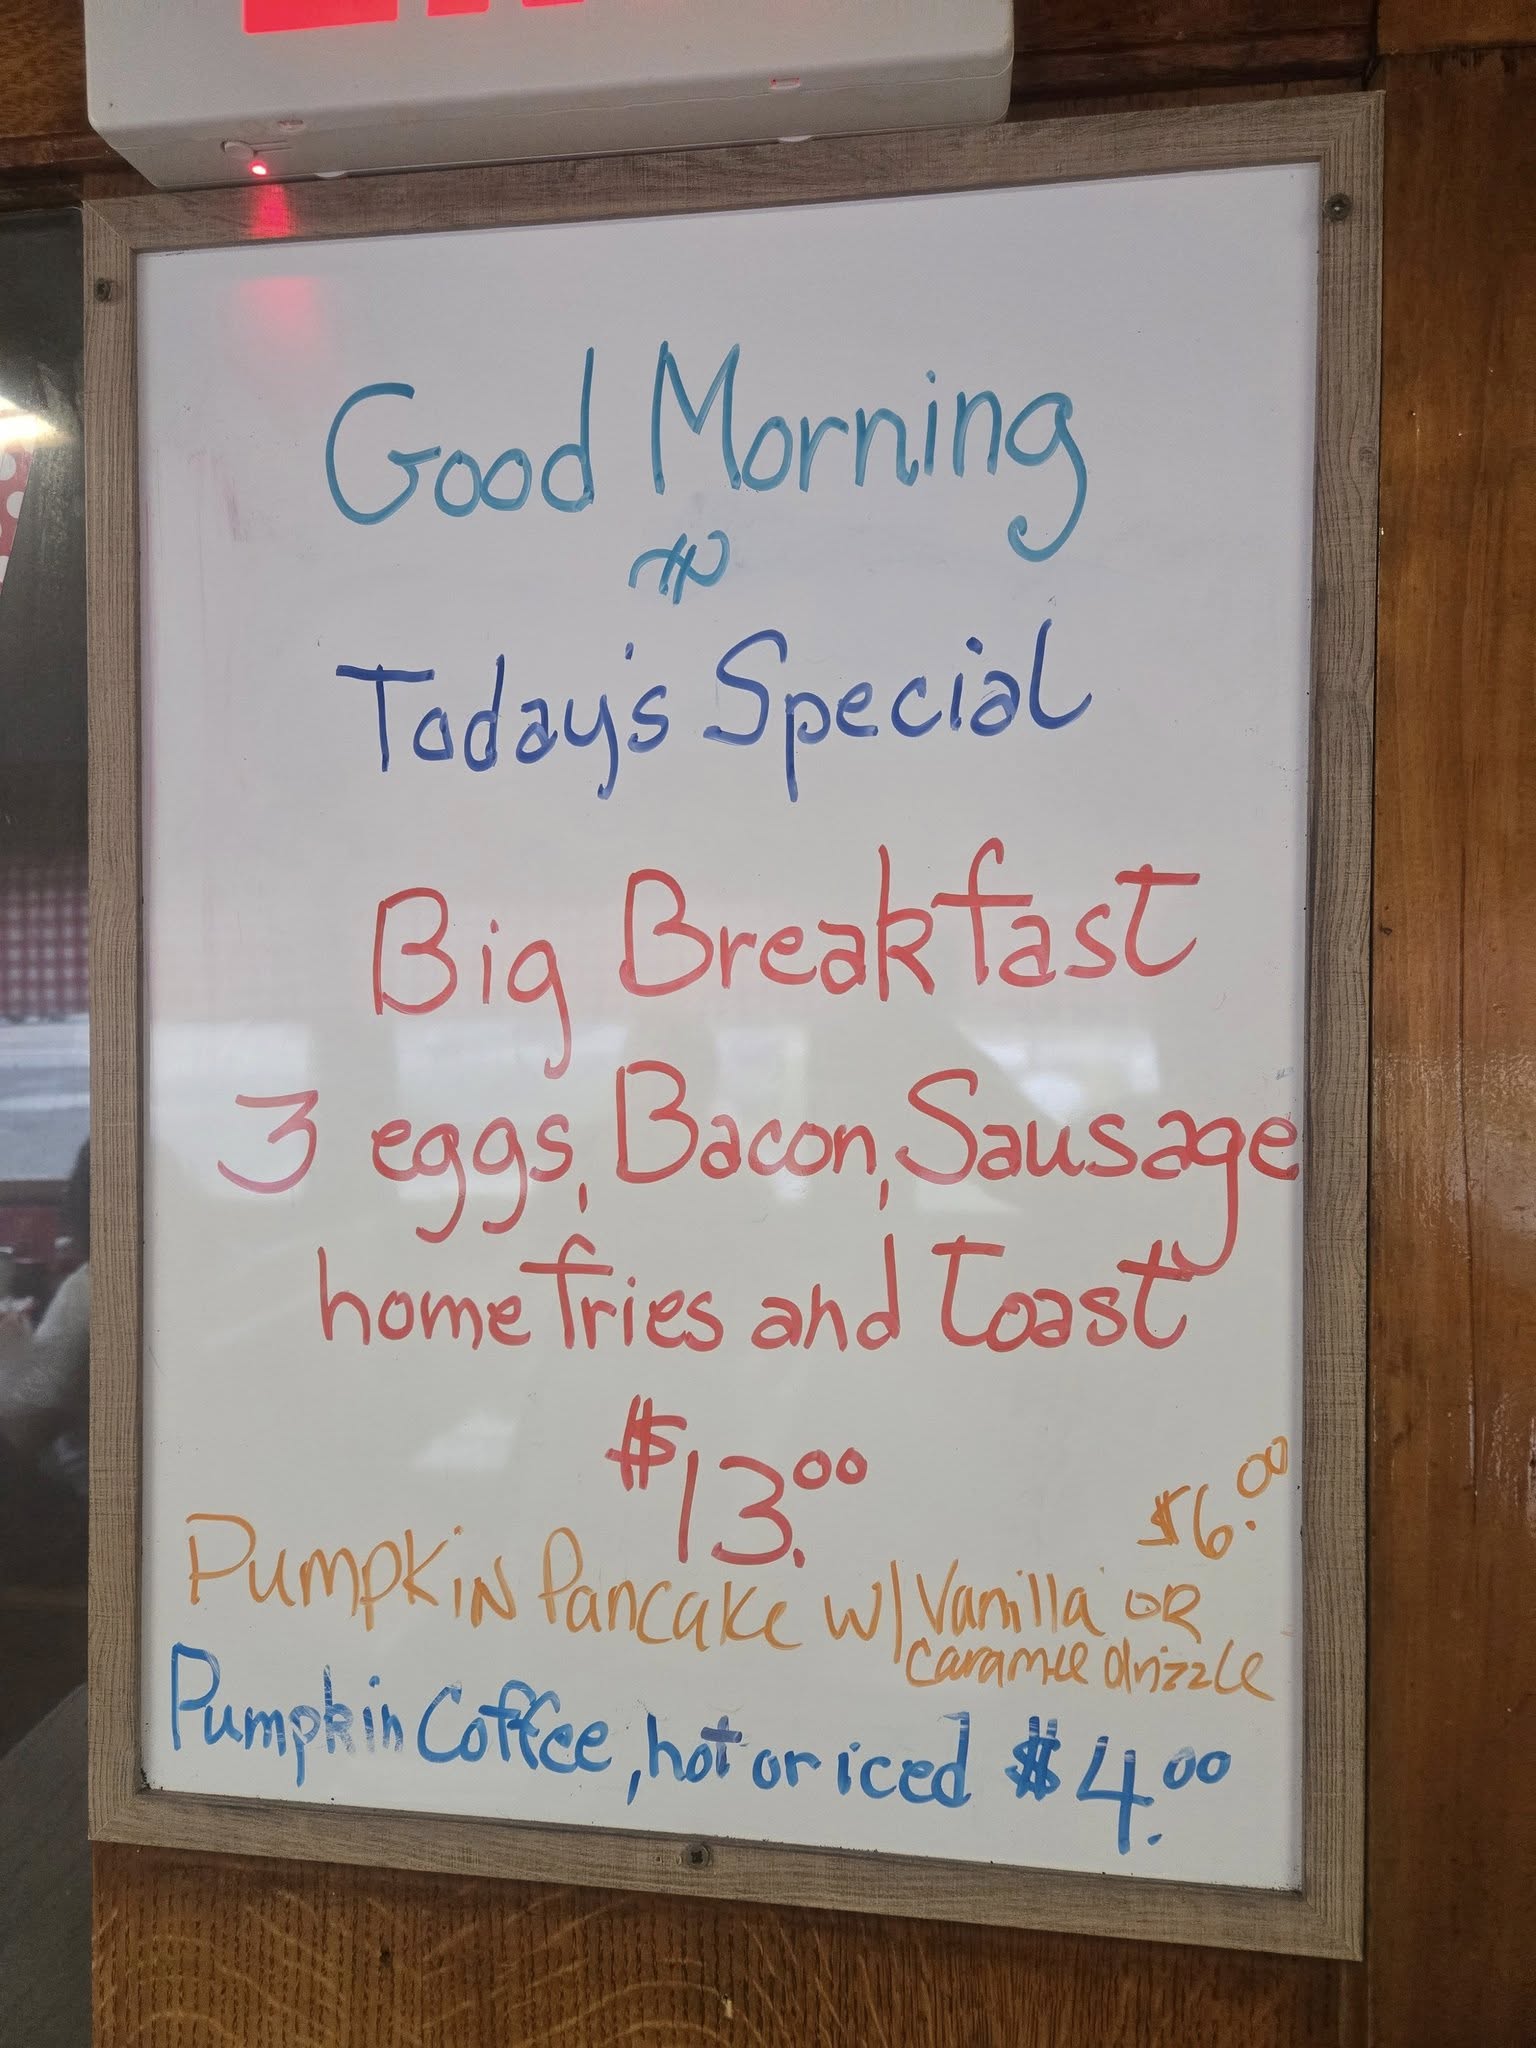 Good Morning
Today's Special
Big Breakfast
3 eggs, Bacon, Sausage
home fries and toast
$13.00
$6.00
Pumpkin Pancake w/ Vanilla OR
caramel drizzle
Pumpkin Coffee, hot or iced $4.00